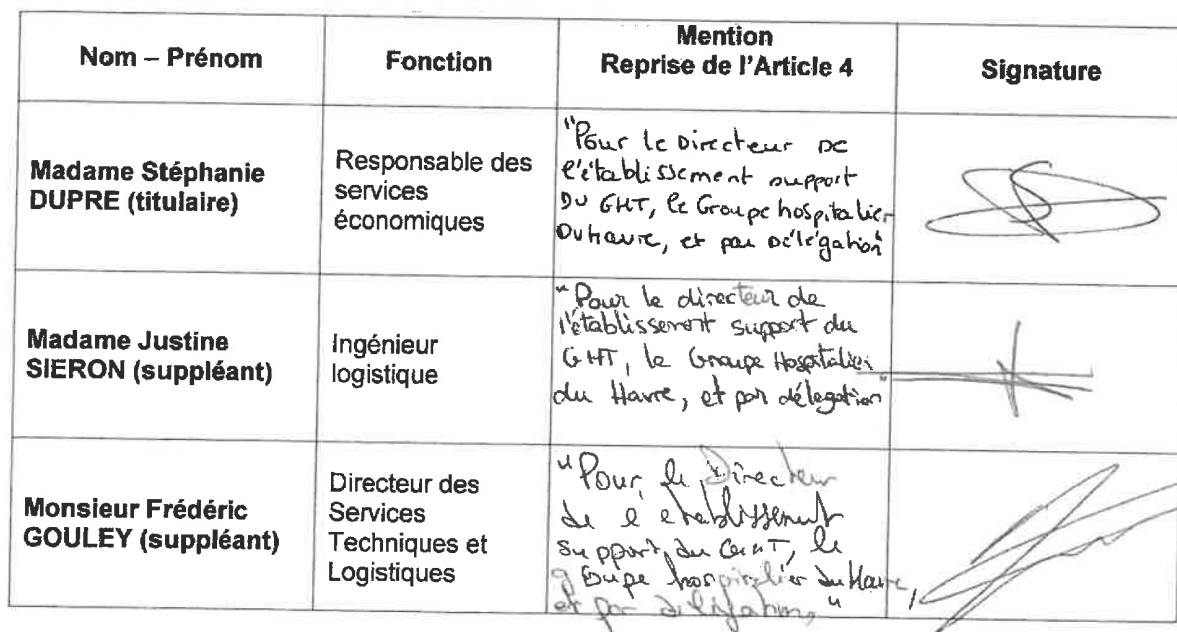 Nom – Prénom
Fonction
Mention
Reprise de l'Article 4
Signature
Madame Stéphanie
DUPRE (titulaire)
Responsable des
services
économiques
"Pour le Directeur DE
l'établissement support
DU GHT, le Groupe hospitalier
Du havre, et par Délégation"
Madame Justine
SIERON (suppléant)
Ingénieur
logistique
"Pour le directeur de
l'établissement support du
GHT, le Groupe Hospitalier
du Havre, et par délégation"
Monsieur Frédéric
GOULEY (suppléant)
Directeur des
Services
Techniques et
Logistiques
"Pour le Directeur
de l etablissement
support du GHT, le
groupe hospitalier du Havre,
et par délégation"